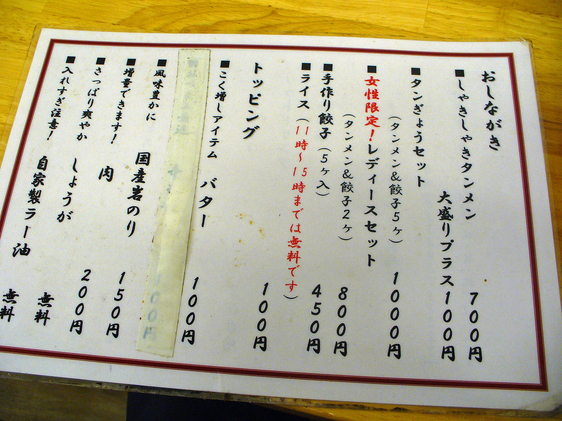 おしながき
■しゃきしゃきタンメン 700円
大盛りプラス100円
■タンぎょうセット
(タンメン&餃子5ヶ) 1000円
■女性限定!レディースセット
(タンメン&餃子2ヶ) 800円
■手作り餃子(5ヶ入) 450円
■ライス(11時〜15時までは無料です) 100円
トッピング
■こく増しアイテム バター 100円
■風味豊かに 国産岩のり 150円
■増量できます! 肉 200円
■さっぱり爽やか しょうが 無料
■入れすぎ注意! 自家製ラー油 無料